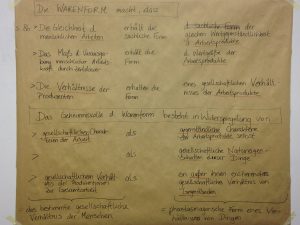 Die WARENFORM macht, dass
> Die Gleichheit d. erhält die d. sachliche Form der
menschlichen Arbeiten sachliche Form gleichen Wertgegenständlichkeit
d. Arbeitsprodukte
> Das Maß d. Verausga- erhält die d. Wertgröße der
bung menschlicher Arbeits- Form Arbeitsprodukte
kraft durch Zeitdauer
> Die Verhältnisse der erhalten die eines gesellschaftlichen Verhält-
Produzenten Form nisses der Arbeitsprodukte
Das Geheimnisvolle d. Warenform besteht in Widerspiegelung von
> gesellschaftlichen Charak- als gegenständliche Charaktere
teren der Arbeit der Arbeitsprodukte selbst
> als gesellschaftliche Natureigen-
schaften dieser Dinge
> gesellschaftlichem Verhält- als ein außer ihnen existierendes
nis der Produzenten gesellschaftliches Verhältnis von
zur Gesamtarbeit Gegenständen
= das bestimmte gesellschaftliche = phantasmagorische Form eines Ver-
Verhältnis der Menschen hältnisses von Dingen